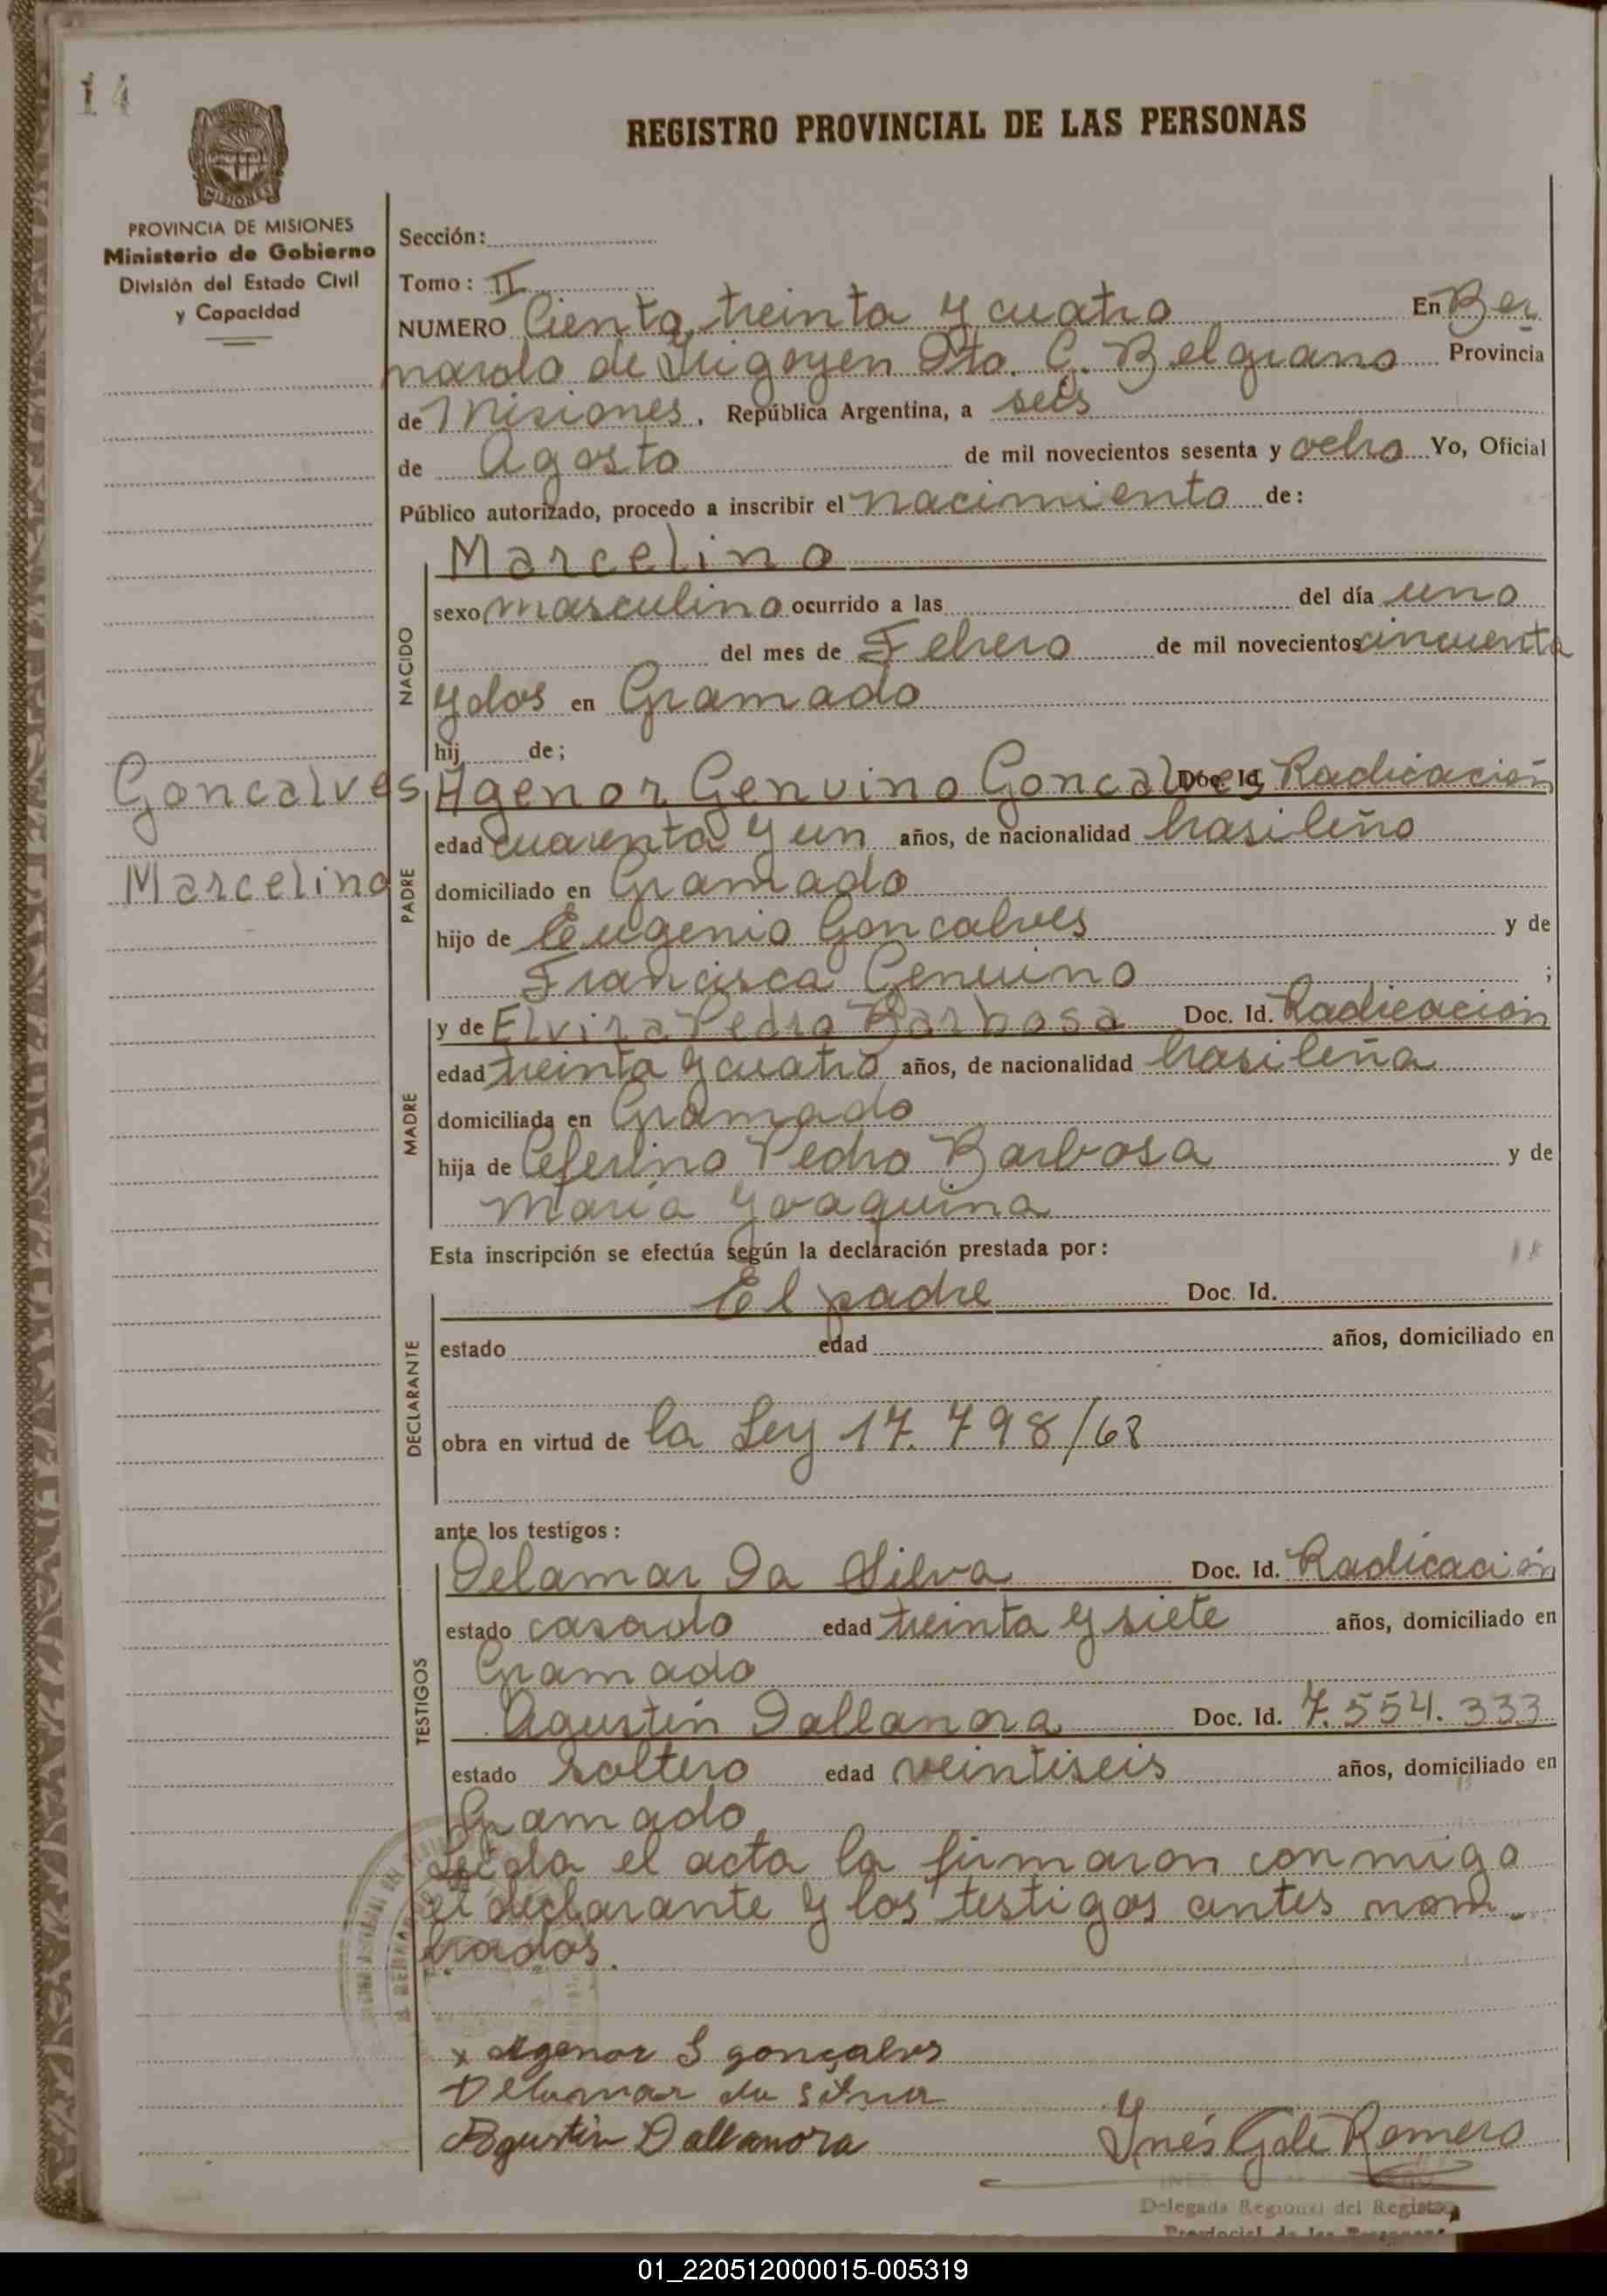 14
REGISTRO PROVINCIAL DE LAS PERSONAS
MISIONES
PROVINCIA DE MISIONES
Ministerio de Gobierno
División del Estado Civil
y Capacidad
Sección:
Tomo: II
NUMERO Ciento treinta y cuatro En Ber
nardo de Irigoyen Pto. G. Belgrano Provincia
de Misiones, República Argentina, a seis
de Agosto de mil novecientos sesenta y ocho Yo, Oficial
Público autorizado, procedo a inscribir el nacimiento de:
NACIDO
Marcelino
sexo masculino ocurrido a las del día uno
del mes de Febrero de mil novecientos cincuenta
y dos en Gramado
hij de;
Goncalves
Marcelino
PADRE
Agenor Genuino Goncalves Doc. Id. Radicación
edad cuarenta y un años, de nacionalidad brasileño
domiciliado en Gramado
hijo de Eugenio Goncalves y de
Francisca Genuino ;
MADRE
y de Elvira Pedro Barbosa Doc. Id. Radicación
edad treinta y cuatro años, de nacionalidad brasileña
domiciliada en Gramado
hija de Ceferino Pedro Barbosa y de
María Yoaquina
Esta inscripción se efectúa según la declaración prestada por:
DECLARANTE
El padre Doc. Id.
estado edad años, domiciliado en
obra en virtud de la Ley 17.798/68
ante los testigos:
TESTIGOS
Delamar Da Silva Doc. Id. Radicación
estado casado edad treinta y siete años, domiciliado en
Gramado
Agustin Dallanora Doc. Id. 7.554.333
estado soltero edad veintiseis años, domiciliado en
Gramado
Leída el acta la firmaron conmigo
el declarante y los testigos antes nom-
brados.
x Agenor G gonçalves
Delamar da Silva
Agustin Dallanora
Inés G de Romero
Delegada Regional del Registro
Provincial de las Personas
01_220512000015-005319